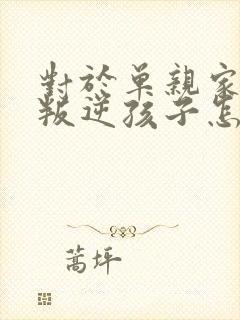 對於單親家
叛逆孩子怎
蒿坪